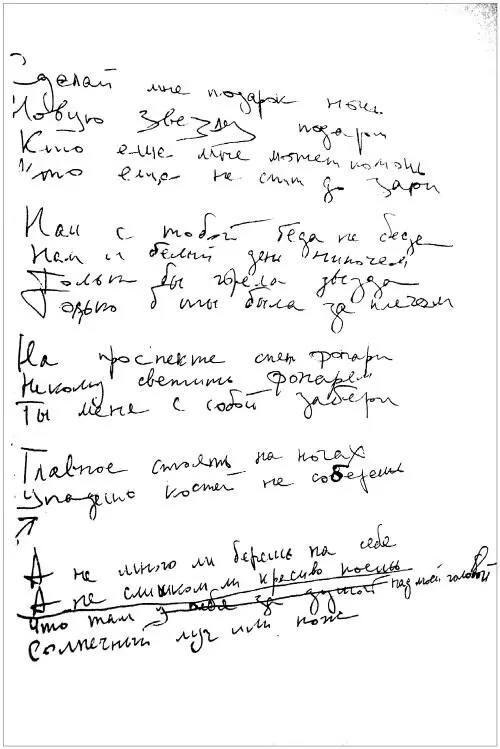 Сделай мне подарок ночь
Новую звезду подари
Кто еще мне может помочь
Кто еще не спит до зари
Нам с тобой беда не беда
Нам и белый день нипочем
Только бы горела звезда
Только б ты была за плечом
На проспекте спят фонари
Некому светить фонарем
Ты меня с собой забери
Главное стоять на ногах
Упадешь костей не соберешь
А не много ли берешь на себе
А не слишком ли красиво поешь
Что там у тебя за душой над моей головой
Солнечный луч или нож